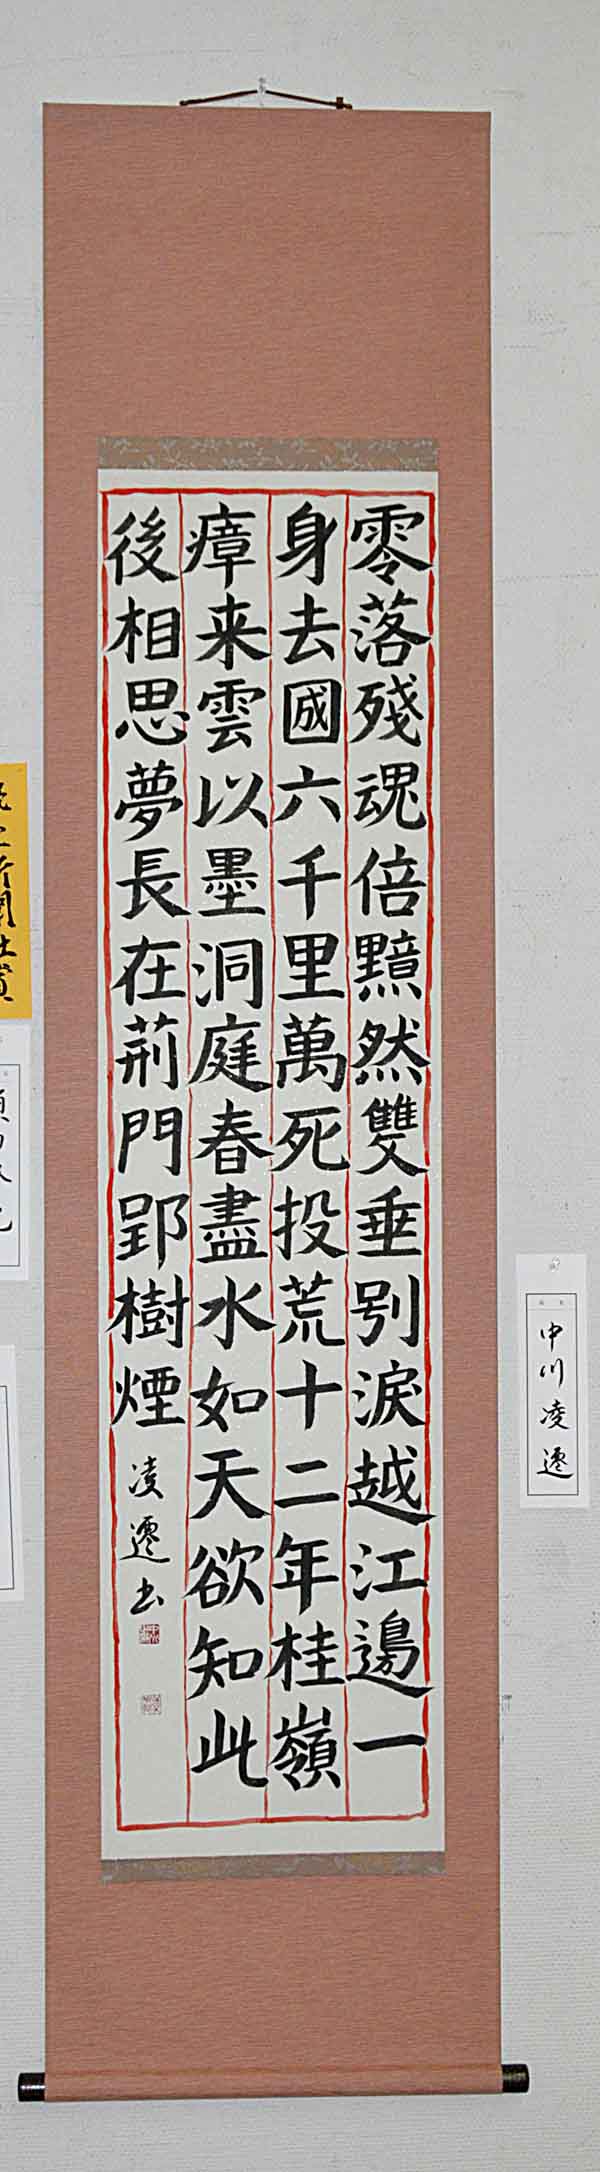 零落殘魂倍黯然雙垂別淚越江邊一
身去國六千里萬死投荒十二年桂嶺
瘴来雲以墨洞庭春盡水如天欲知此
後相思夢長在荊門郢樹煙
凌遷書
中川凌遷